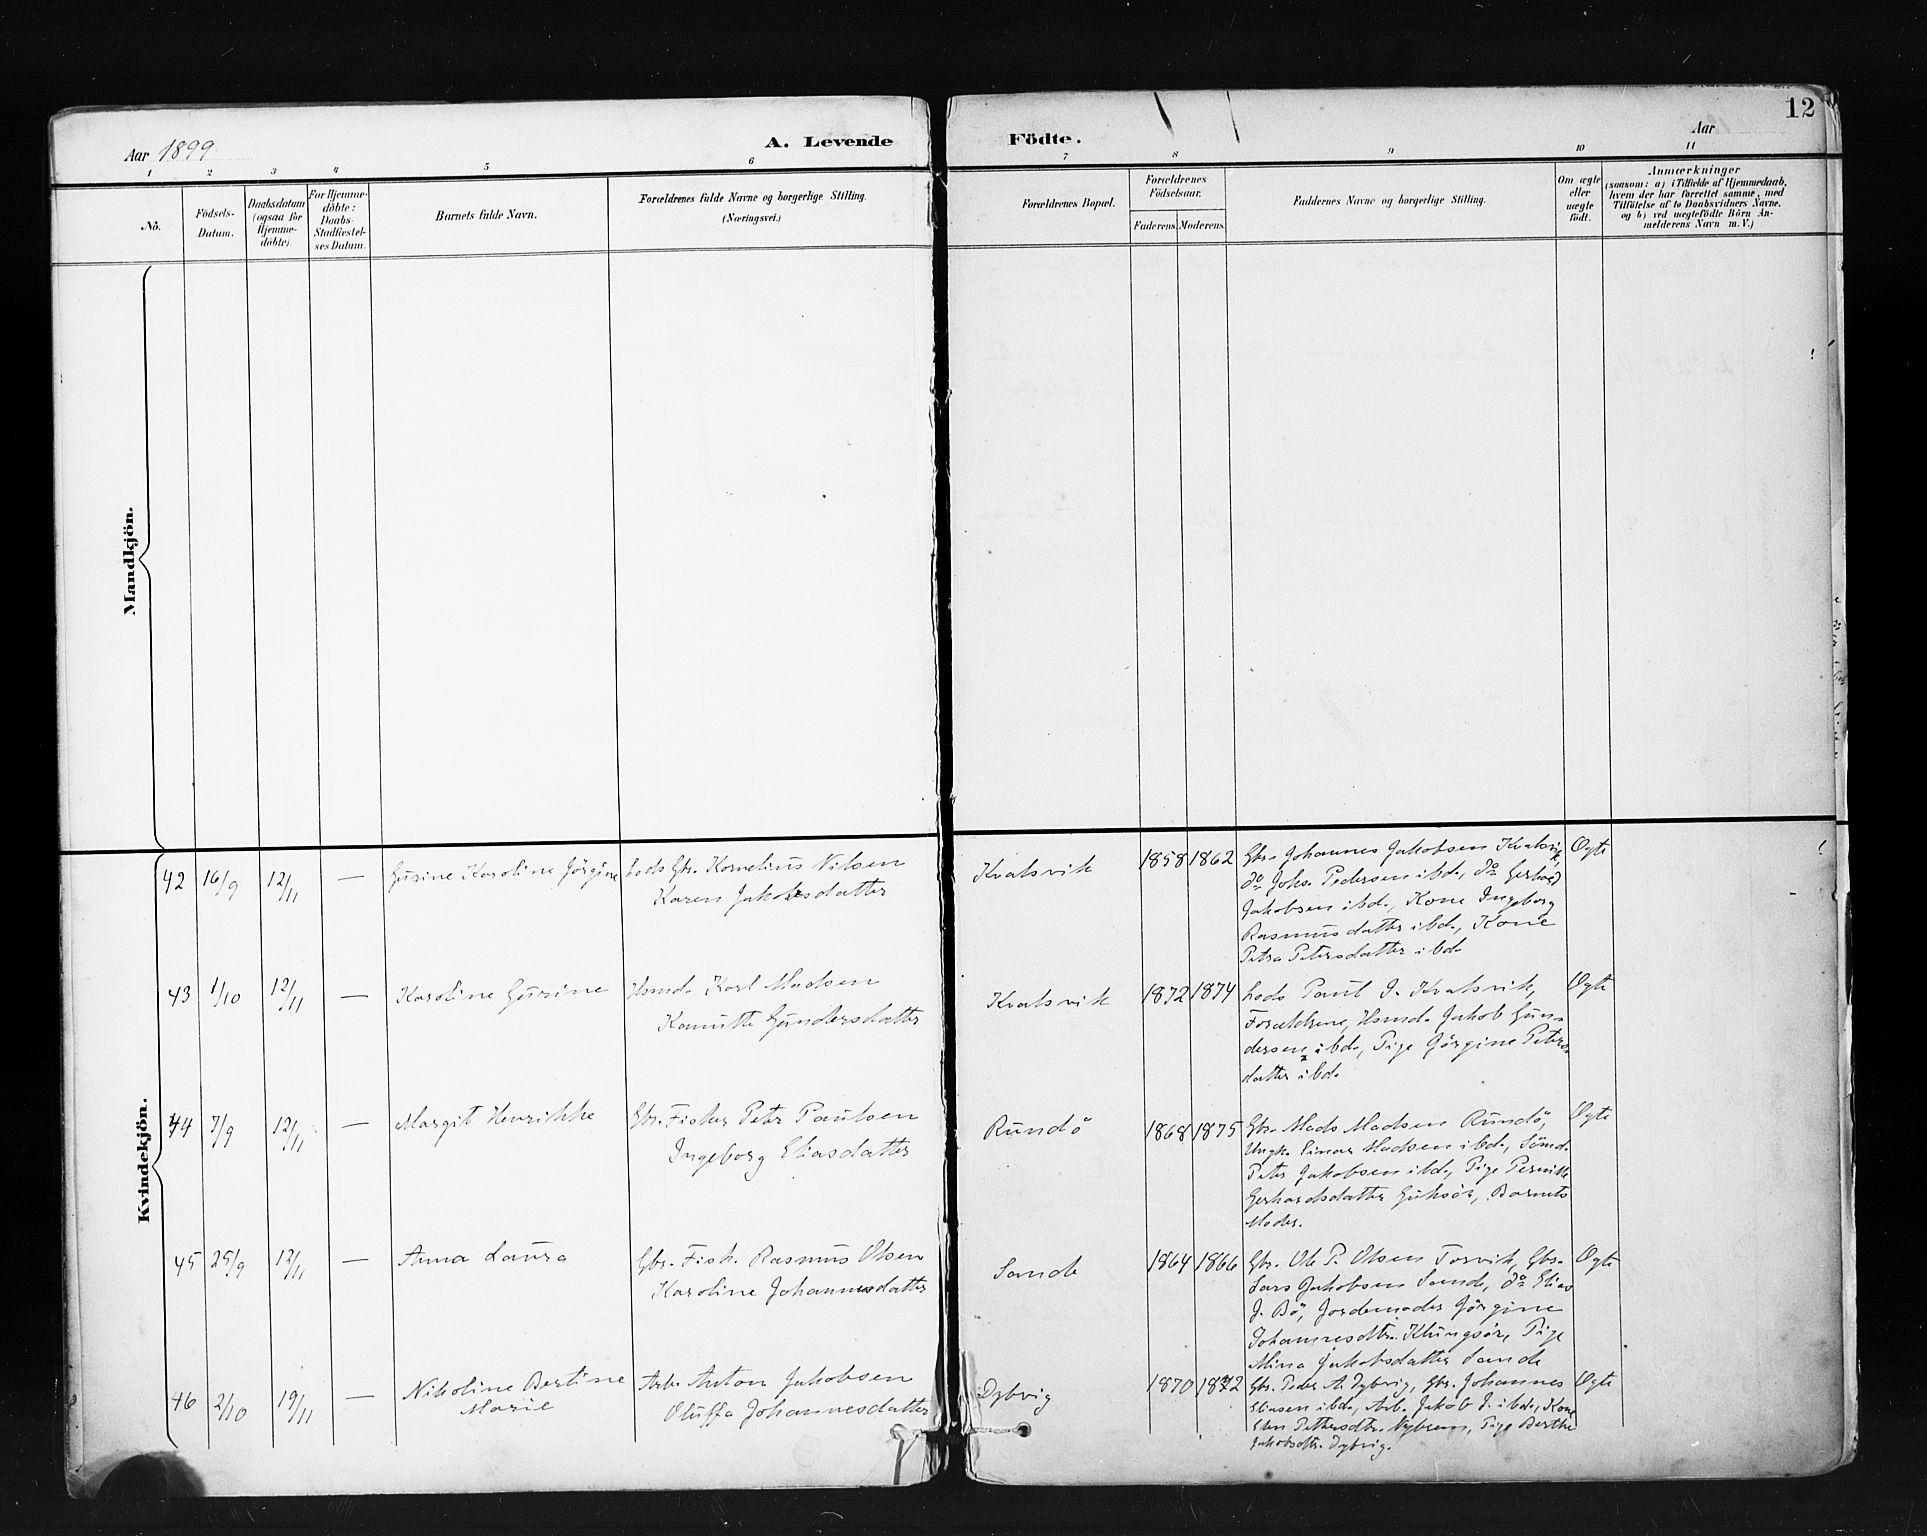 12
Aar 1899
A. Levende Födte.
Aar
1 2 3 4 5 6 7 8 9 10 11
No.
Födsels-Datum.
Daabsdatum (ogsaa for Hjemme-döbte).
For Hjemme-döbte: Daabs-Stadfæstel-ses Datum.
Barnets fulde Navn.
Forældrenes fulde Navne og borgerlige Stilling.
(Næringsvei.)
Forældrenes Bopæl.
Forældrenes Födselsaar.
Faderens. Moderens.
Faddernes Navne og borgerlige Stilling.
Om ægte eller uægte födt.
Anmærkninger
(saasom: a) i Tilfælde af Hjemmedaab,
hvem der har forrettet samme, med
Tilföielse af to Daabsvidners Navne,
og b) ved uægtefödte Börn An-
melderens Navn m. V.)
Mandkjön.
Kvindekjön.
42 16/9 12/11 — Gurine Karoline Jörgine
Lods Gbr. Kornelius Nilsen
Karen Jakobsdatter
Kvalsvik
1858 1862
Gbr. Johannes Jakobsen Kvalsvik,
do Johs. Pedersen ibd., do Gerhard
Jakobsen ibd., Kone Ingeborg
Rasmusdatter ibd., Kone
Petra Petersdatter ibd.
Ægte
43 1/10 12/11 — Karoline Gurine
Husmd. Karl Madsen
Gundersdatter
Kvalsvik
1872 1874
Lods Paul J. Kvalsvik,
Forældrene, Husmd. Jakob Gun-
dersen ibd., Pige Jörgine Peters
datter ibd.
Ægte
44 7/9 12/11 — Margit Henrikke
Gbr. Fisker Peter Paulsen
Ingeborg Eliasdatter
Rundö
1868 1875
Gbr. Mads Madsen Rundö,
Ungk. Einar Madsen ibd., Sömd.
Peter Jakobsen ibd., Pige Pernille
Gerhardsdatter Goksör, Barnets
Moder.
Ægte
45 25/9 12/11 — Anna Laura
Gbr. Fisk. Rasmus Olsen
Karoline Johannesdatter
Sande
1864 1866
Gbr. Ole P. Olsen Torvik, Gbr.
Lars Jakobsen Sande, do Elias
J. Bö, Jordemoder Jörgine
Johannesdtr. Klungsör, Pige
Mina Jakobsdatter Sande
Ægte
46 2/10 19/11 — Nikoline Bertine
Marie
Arb. Anton Jakobsen
Oluffa Johannesdatter
Dybvig
1870 1872
Gbr. Peder A. Dybvig, Gbr. Johannes
Eliasen ibd., Arb. Jakob J. ibd., Kone
Elen Pettersdtr. Pige Berthe
Jakobsdtr. Dybvig.
Ægte